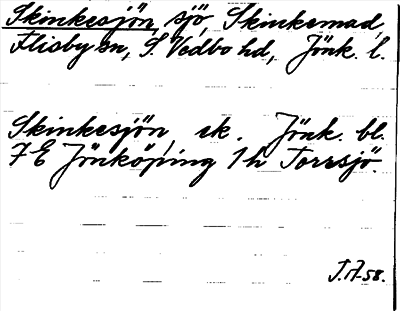 Skinkesjön, sjö, Skinkemad,
Flisby sn, S. Vedbo hd, Jönk. l.
Skinkesjön ek. Jönk. bl.
7E Jönköping 1h Torrsjö.
J.A-58.